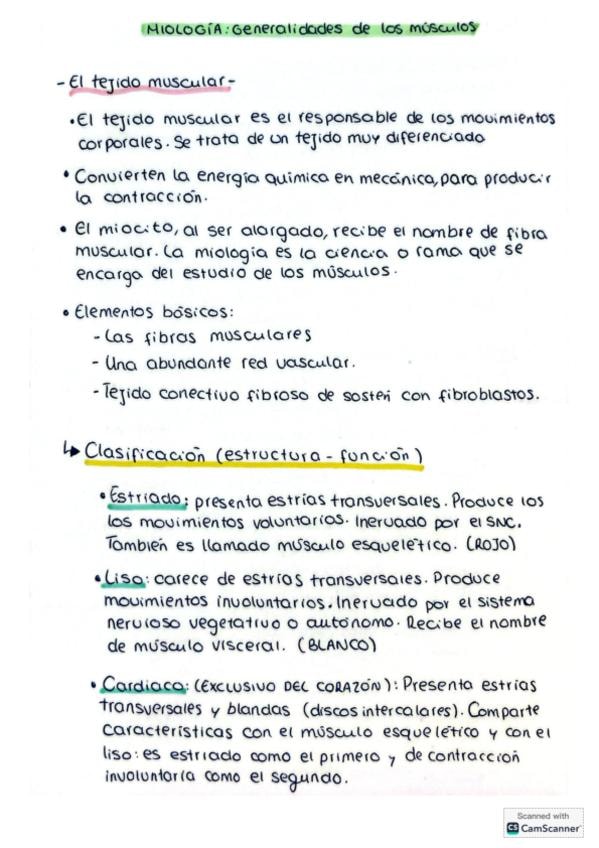 MIOLOGÍA: Generalidades de los músculos
- El tejido muscular -
• El tejido muscular es el responsable de los movimientos
corporales. Se trata de un tejido muy diferenciado
• Convierten la energía química en mecánica, para producir
la contracción.
• El miocito, al ser alargado, recibe el nombre de fibra
muscular. La miología es la ciencia o rama que se
encarga del estudio de los músculos.
• Elementos básicos:
- Las fibras musculares
- Una abundante red vascular.
- Tejido conectivo fibroso de sostén con fibroblastos.
↳ Clasificación (estructura - función)
• Estriado: presenta estrías transversales. Produce los
los movimientos voluntarios. Inervado por el SNC.
También es llamado músculo esquelético. (ROJO)
• Liso: carece de estrías transversales. Produce
movimientos involuntarios. Inervado por el sistema
nervioso vegetativo o autónomo. Recibe el nombre
de músculo visceral. (BLANCO)
• Cardiaco: (EXCLUSIVO DEL CORAZÓN): Presenta estrías
transversales y blandas (discos intercalares). Comparte
características con el músculo esquelético y con el
liso: es estriado como el primero y de contracción
involuntaria como el segundo.
Scanned with
CS CamScanner